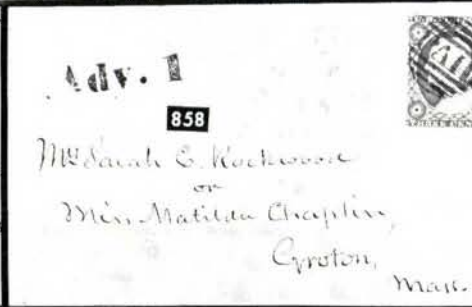 Adv. 1
858
THREE CEN
Mrs Sarah E. Rockwood
or
Miss Matilda Chaplin,
Groton,
Mass.